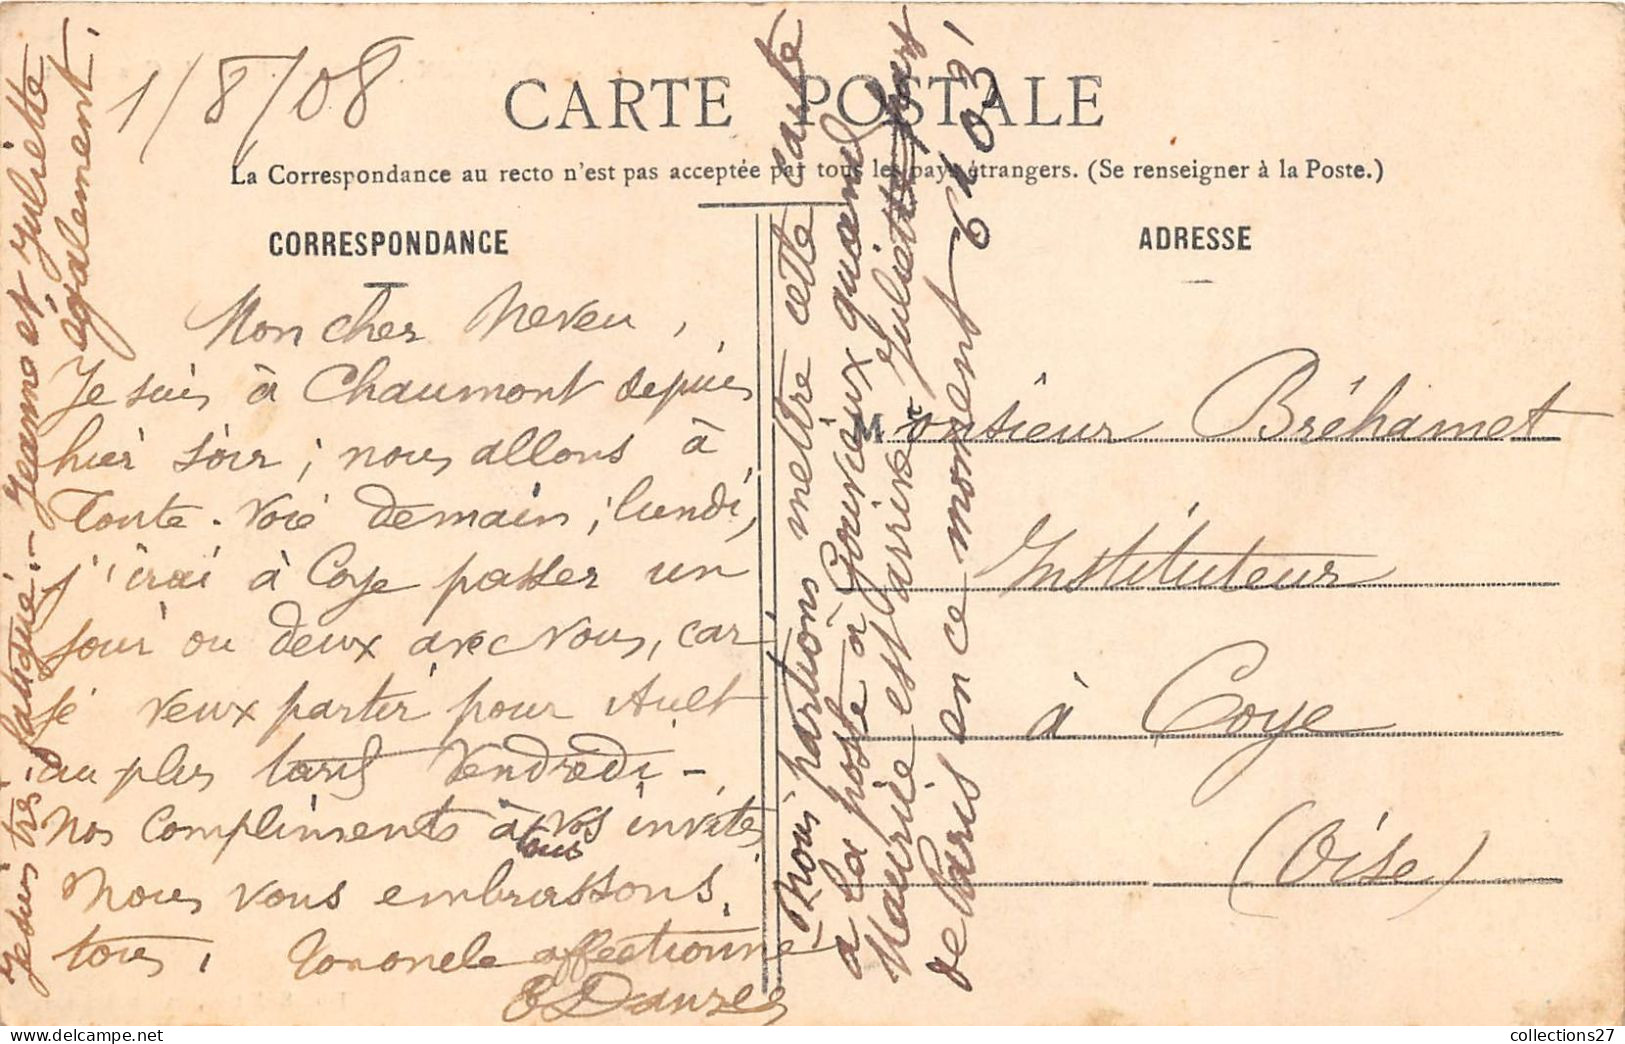 1/8/08
CARTE POSTALE
La Correspondance au recto n'est pas acceptée par tous les pays étrangers. (Se renseigner à la Poste.)
CORRESPONDANCE
ADRESSE
Mon cher Neveu,
Je suis à Chaumont depuis
hier soir; nous allons à
Toute-Voie demain; lundi,
j'irai à Coye passer un
jour ou deux avec vous, car
je veux partir pour Ault
au plus tard Vendredi -
Nos Compliments à vos invités
tous
Nous vous embrassons
tous. Ton oncle affectionné
Mr onsieur Bréhamet
Instituteur
à Coye
(Oise)
Je suis très fatigué. - Jeanne et Juliette
également.
Nous partions mettre cette carte
à la poste à Gouvieux quand
Maurice est arrivé. Juliette part
de Paris en ce moment 6h 03
collections27